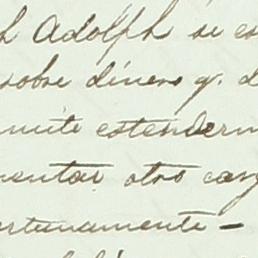 h Adolph si es
sobre dinero q. d
mite estenderm
mentar otro carg
ortunamente —